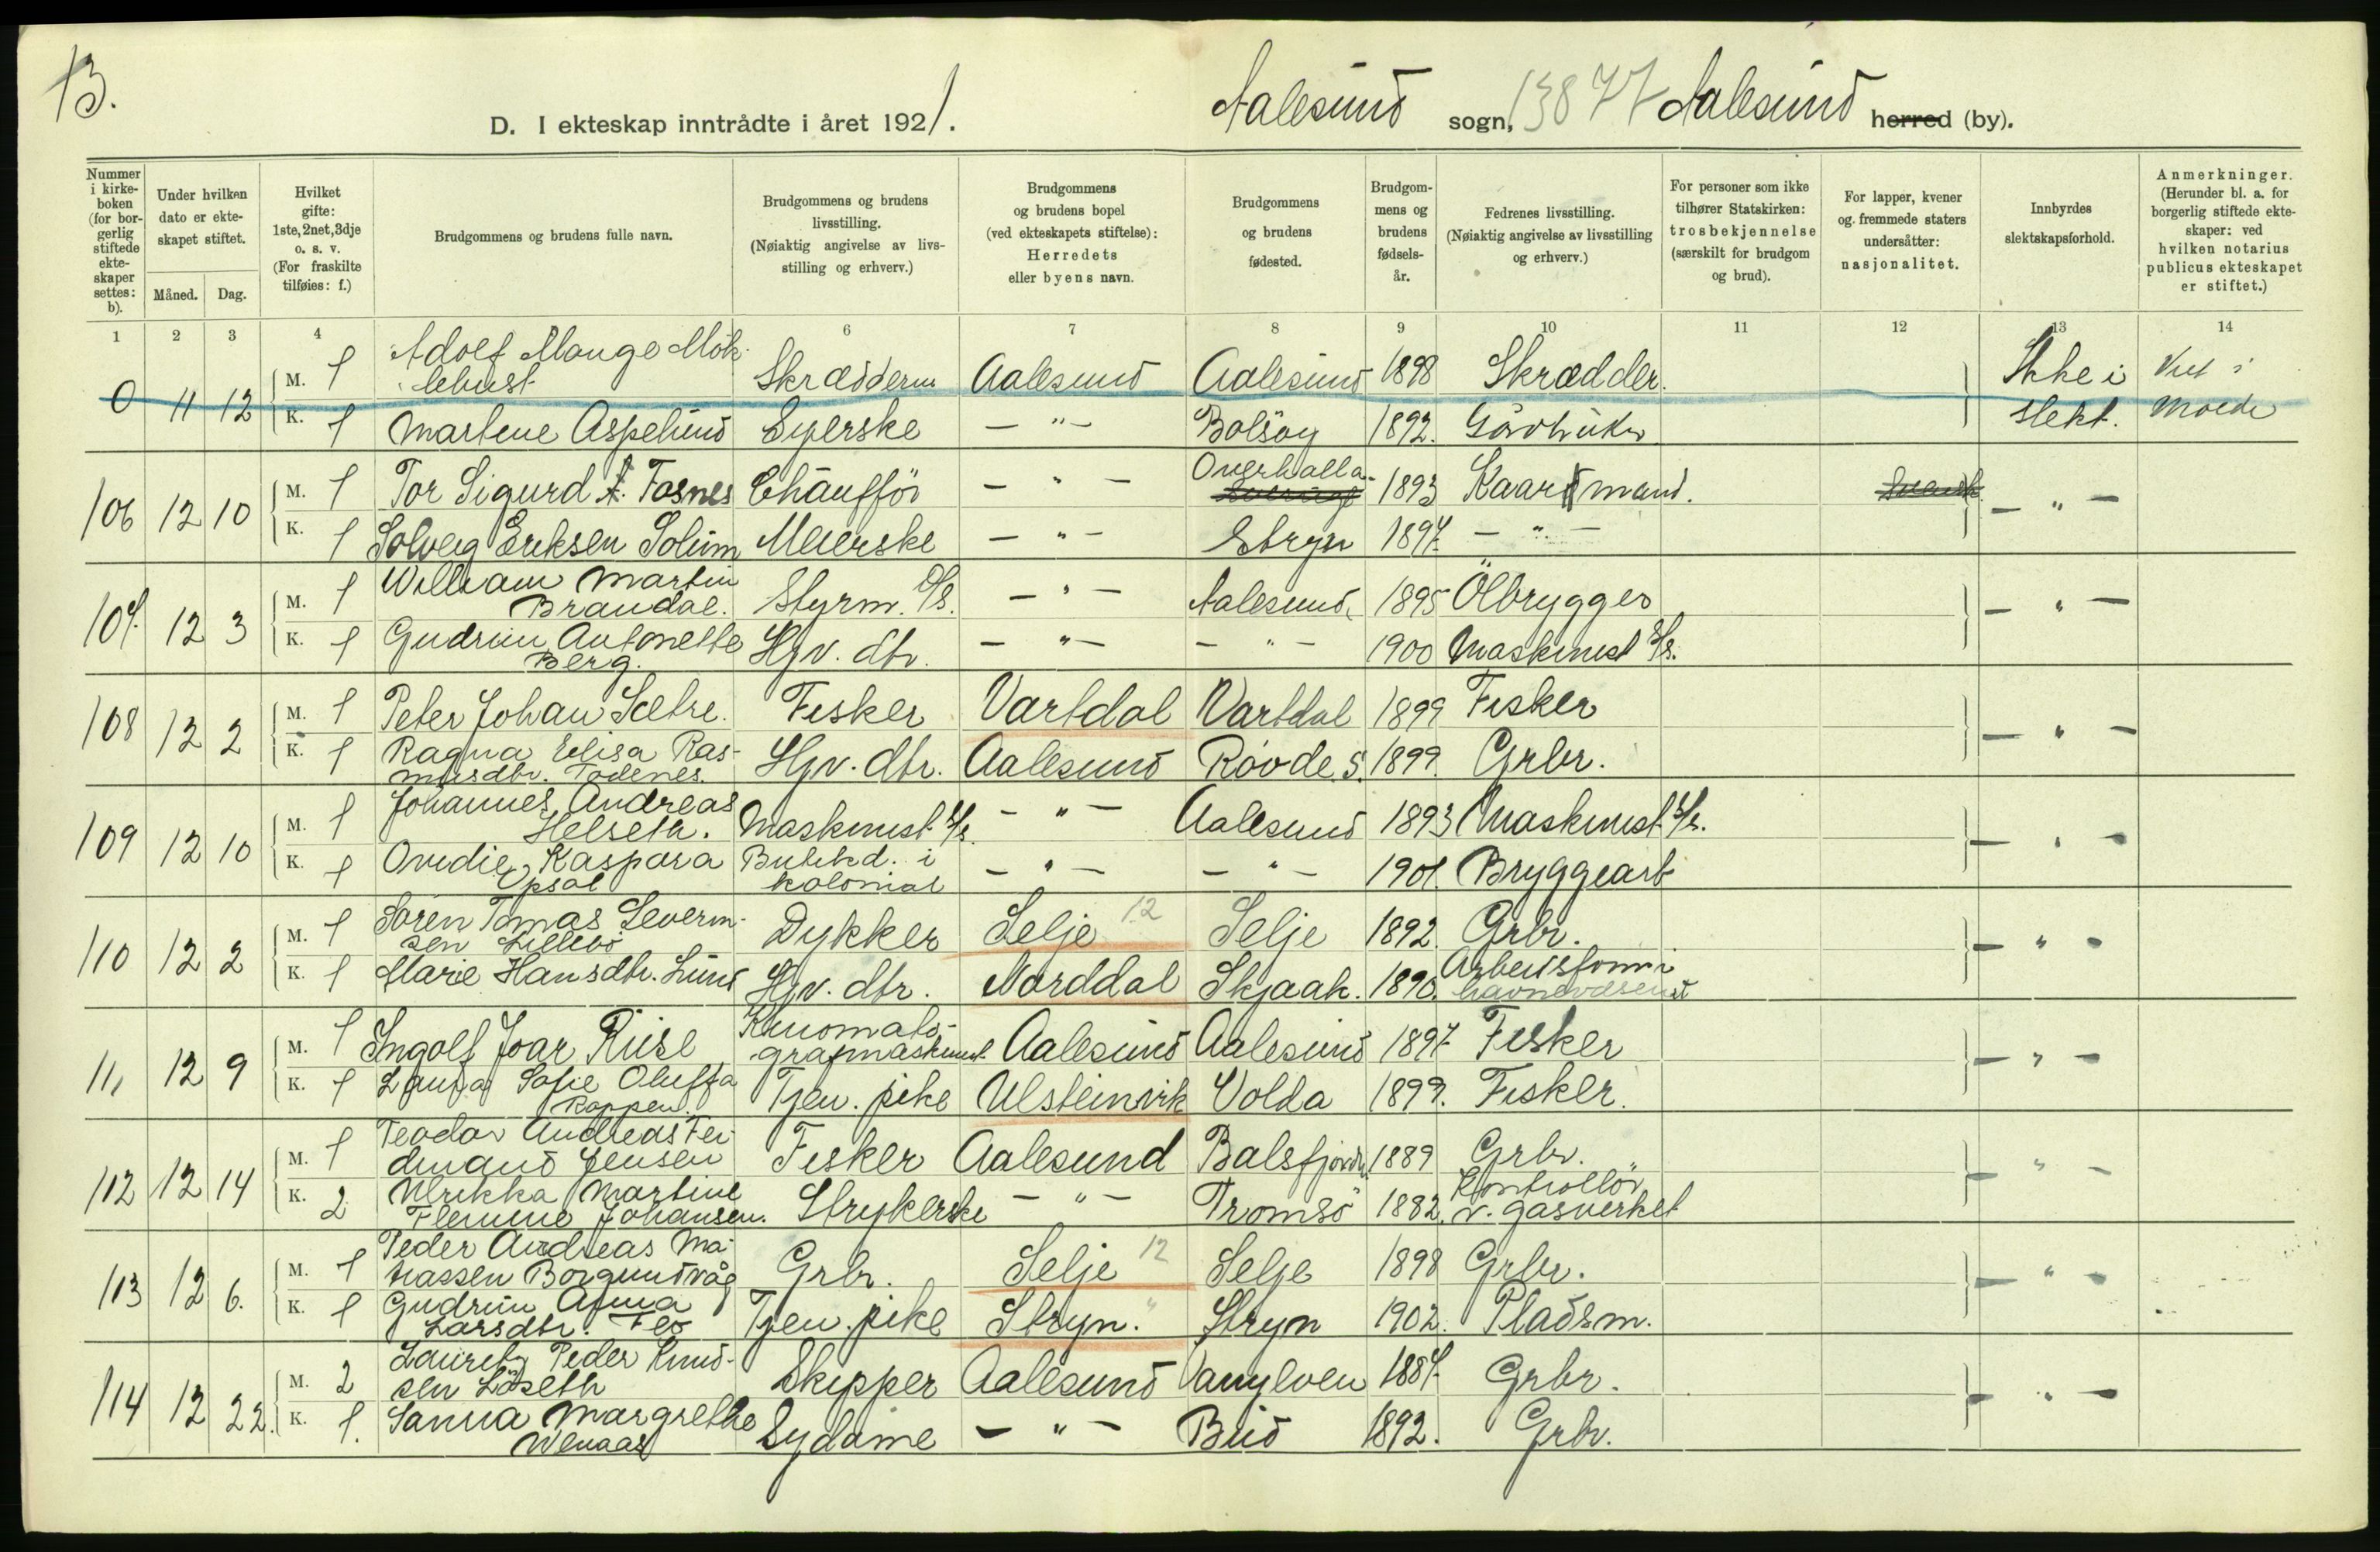 13.
D. I ekteskap inntrådte i året 1921.
Aalesund sogn, 13877 Aalesund herred (by).
Nummer i kirkeboken (for borgerlig stiftede ekteskaper settes: b).
Under hvilken dato er ekteskapet stiftet.
Måned. Dag.
Hvilket gifte: 1ste, 2net, 3dje o. s. v. (For fraskilte tilføies: f.)
Brudgommens og brudens fulle navn.
Brudgommens og brudens livsstilling. (Nøiaktig angivelse av livsstilling og erhverv.)
Brudgommens og brudens bopel (ved ekteskapets stiftelse): Herredets eller byens navn.
Brudgommens og brudens fødested.
Brudgommens og brudens fødselsår.
Fedrenes livsstilling. (Nøiaktig angivelse av livsstilling og erhverv.)
For personer som ikke tilhører Statskirken: trosbekjennelse (særskilt for brudgom og brud).
For lapper, kvener og fremmede staters undersåtter: nasjonalitet.
Innbyrdes slektskapsforhold.
Anmerkninger. (Herunder bl. a. for borgerlig stiftede ekteskaper: ved hvilken notarius publicus ekteskapet er stiftet.)
1 2 3 4 6 7 8 9 10 11 12 13 14
0 11 12 M. 1 Adolf Mauge Møklebust Skrædderm Aalesund Aalesund 1898 Skrædder. Ikke i slekt. Viet i Molde
K. 1 Martine Aspelund Syerske — " — Bolsøy 1892. Gårdbruker
106 12 10 M. 1 Tor Sigurd A. Fosnes Chauffør — " — Overhalla 1893 Kaarmand. Svensk — " —
K. 1 Solveig Eriksen Solum Meierske — " — Stryn 1897. — " —
107. 12 3 M. 1 William Martin Brandal. Styrm. D/S. — " — Aalesund. 1895 Ölbrygger — " —
K. 1 Gudrun Antonette Berg. Hjv. dtr. — " — — " — 1900 Maskinist S/s.
108 12 2 M. 1 Peter Johan Sætre. Fisker Vartdal Vartdal 1899 Fisker — " —
K. 1 Ragna Elisa Rasmusdtr. Todenes. Hjv. dtr. Aalesund Røvde S. 1899. Grbr.
109 12 10 M. 1 Johannes Andreas Helseth. Maskinist S/s. — " — Aalesund 1893 Maskinist S/s. — " —
K. 1 Ovidie Kaspara Opsal Butikd. i kolonial — " — — " — 1901. Bryggearb
110 12 2 M. 1 Søren Tomas Severinsen Lillebø Dykker Selje 12 Selje 1892. Grbr. — " —
K. 1 Marie Hansdtr. Lund Hjv. dtr. Norddal Skjaak. 1890. Arbeidsform i havnevæsenet
111 12 9 M. 1 Ingolf Joar Riise Kinomatografmaskinist Aalesund Aalesund 1897 Fisker — " —
K. 1 Laura Sofie Oluffa Koppen. Tjen. pike Ulsteinvik Volda 1899. Fisker.
112 12 14 M. 1 Teodor Andreas Ferdinand Jensen Fisker Aalesund Balsfjorden 1889 Grbr. — " —
K. 2 Ulrikka Martine Flemine Johansen. Strykerske — " — Tromsø 1882. Kontrollør v. gasverket
113 12 6. M. 1 Peder Andreas Matiassen Borgundvåg Grbr. Selje 12 Selje 1898 Grbr. — " —
K. 1 Gudrun Anna Larsdtr. Flo Tjen. pike Stryn. " Stryn 1902. Pladsm.
114 12 22. M. 2 Lauritz Peder Knudsen Løseth Skipper Aalesund Vanylven 1887. Grbr. — " —
K. 1. Sanna Margrethe Wenaas Sydame — " — Bud 1892. Grbr.